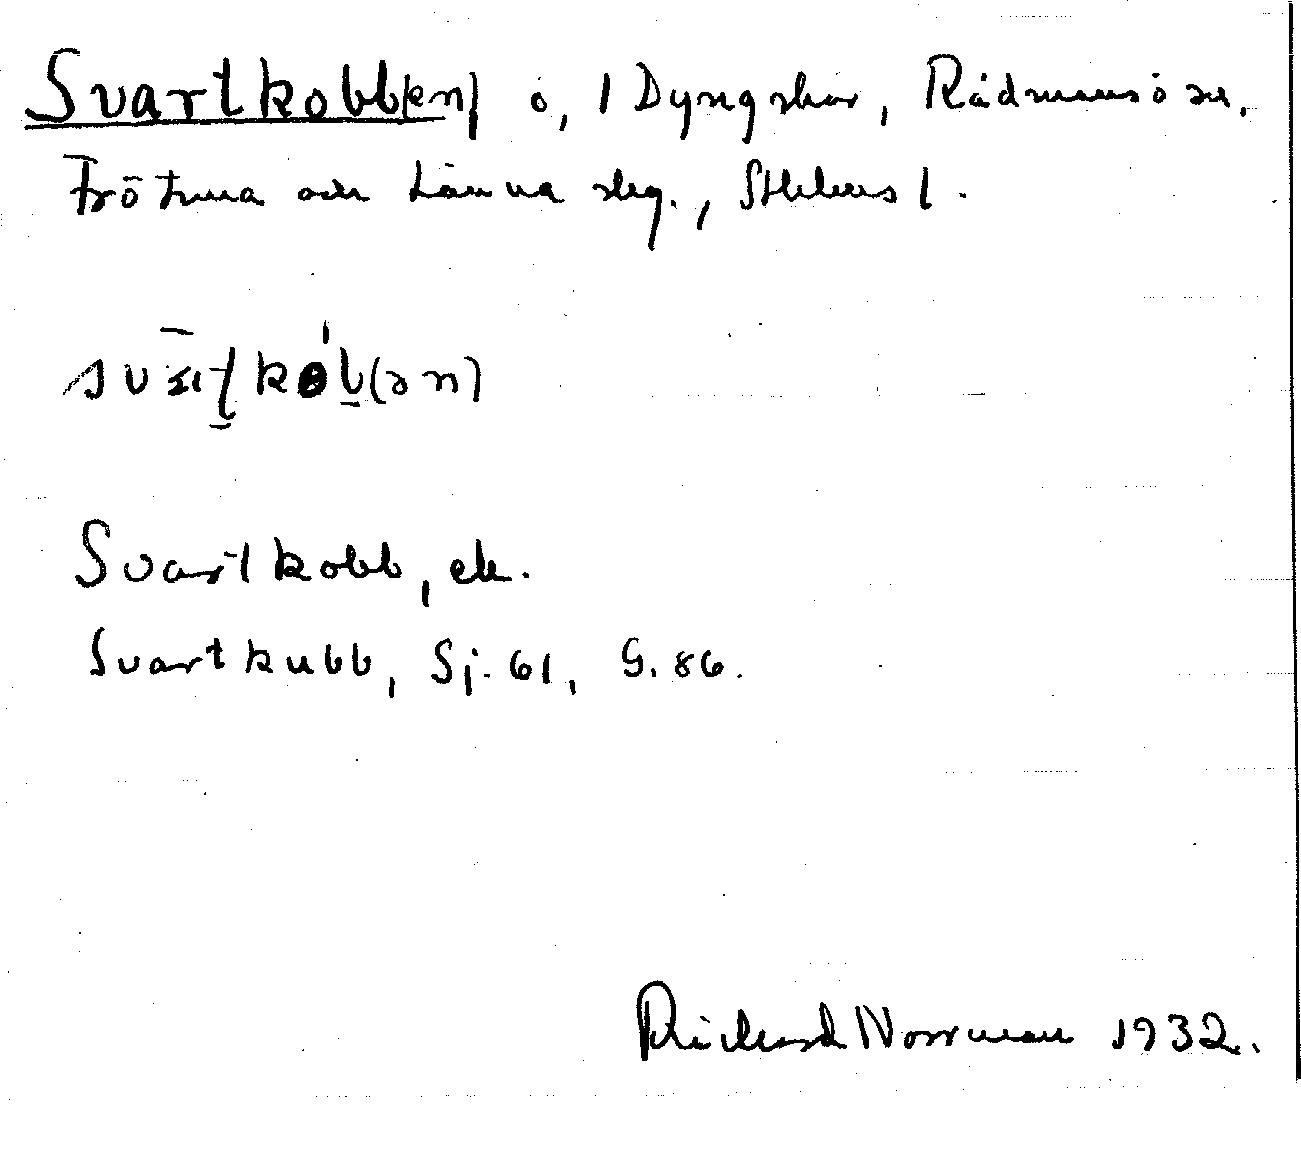 Svartkobb(en) ö, / Dyngskär, Rådmansö sn,
Frötuna och Länna slg., Sthlms l.
svartkob(ən)
Svartkobb, ek.
Svartkubb, Sj. 61, G. 86.
Rickard Norrman 1932.